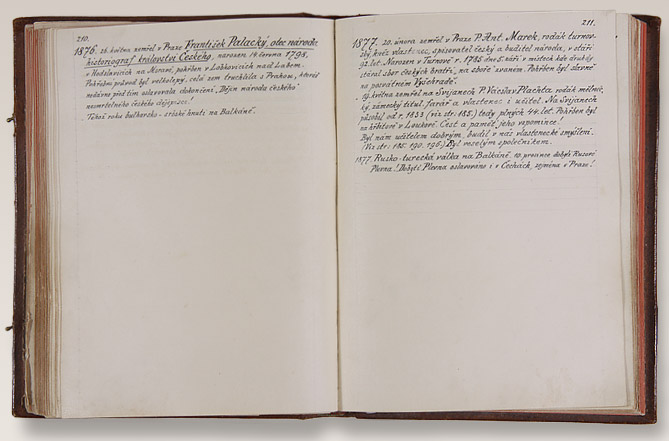 210.
1876. 26. května zemřel v Praze František Palacký, otec národa,
historiograf království Českého, narozen 14. června 1798,
v Hodslavicích na Moravě, pohřben v Lobkovicích nad Labem.
Pohřební průvod byl velkolepý, celá zem truchlila s Prahou, kteráž
nedávno před tím oslavovala dokončení „Dějin národa českého"
nesmrtelného českého dějepisce!
Téhož roku bulharsko - srbské hnutí na Balkáně.
211.
1877. 20. února zemřel v Praze P. Ant. Marek, rodák turnov-
ský, kněz vlastenec, spisovatel český a buditel národa, v stáří
92. let. Narozen v Turnově r. 1785 dne 5. září v místech kde druhdy
stával sbor českých bratří, na sboře zvaném. Pohřben byl slavně
na posvátném Vyšehradě.
května zemřel na Svijanech P. Václav Plachta, rodák mělnic-
ký, zámecký titul. farář a vlastenec i učitel. Na Svijanech
působil od r. 1833 (viz str: 185.) tedy plných 44. let. Pohřben byl
na hřbitově v Loukově. Čest a paměť jeho vzpomínce!
Byl nám učitelem dobrým, budil v nás vlastenecké smýšlení.
(Viz str: 185. 190. 196.) Byl veselým společníkem.
1877. Rusko-turecká válka na Balkáně. 10. prosince dobyli Rusové
Plevna! Dobytí Plevna oslavováno i v Čechách, zejména v Praze!